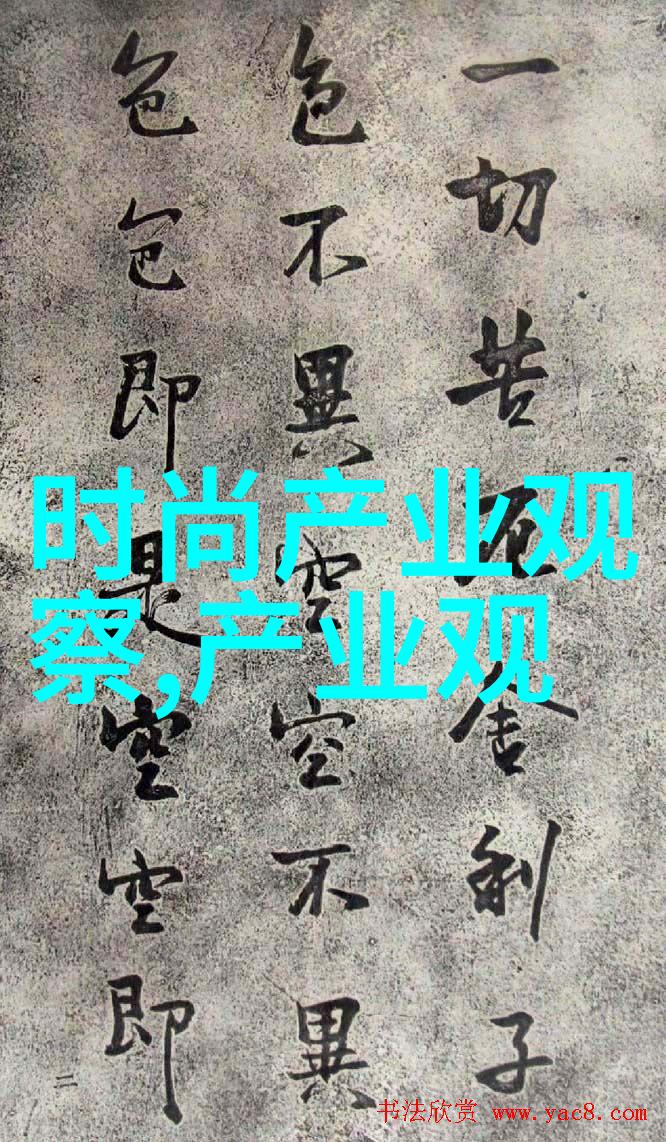 一切苦厄舍利子
色不異空空不異
色色即是空空即
二
时尚产业观
察,产业观
书法欣赏 www.yac8.com